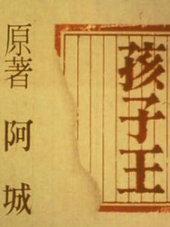 孩子王
原著 阿城